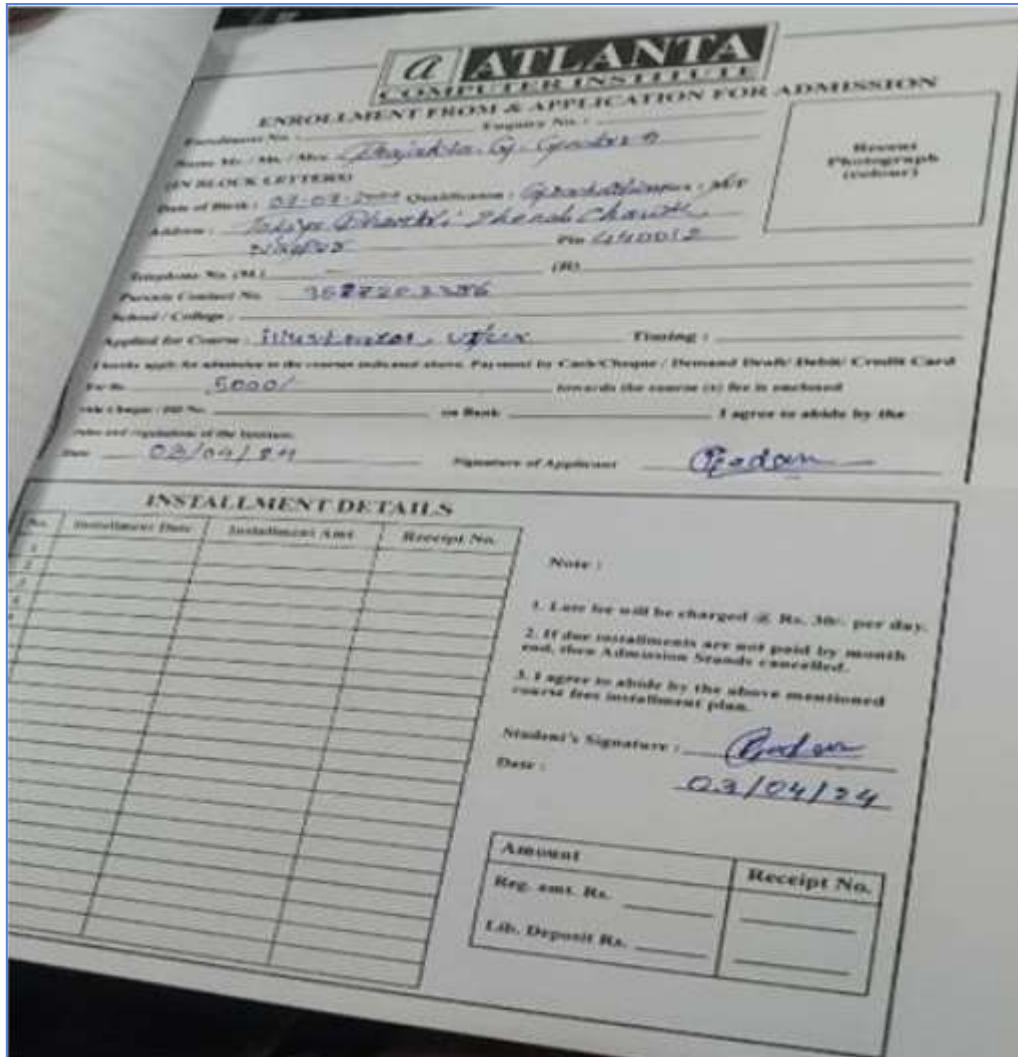 a ATLANTA
COMPUTER INSTITUTE
ENROLLMENT FROM & APPLICATION FOR ADMISSION
Enrollment No. : Enquiry No. :
Name Mr. / Ms. / Mrs. G.
(IN BLOCK LETTERS)
Date of Birth : Qualification :
Address : Chowk,
Pin 440012
Recent
Photograph
(colour)
Telephone No. (M.) (R)
Parents Contact No.
School / College :
Applied for Course : Timing :
I hereby apply for admission to the courses indicated above. Payment by Cash/Cheque / Demand Draft/ Debit/ Credit Card
for Rs. 5000/ towards the course (s) fee is enclosed
vide Cheque / DD No. on Bank I agree to abide by the
rules and regulations of the Institute.
Date 03/04/24 Signature of Applicant
INSTALLMENT DETAILS
No. Installment Date Installment Amt Receipt No.
1
2
3
4
Note :
1. Late fee will be charged @ Rs. 30/- per day.
2. If due installments are not paid by month
end, then Admission Stands cancelled.
3. I agree to abide by the above mentioned
course fees installment plan.
Student's Signature :
Date : 03/04/24
Amount Receipt No.
Reg. amt. Rs.
Lib. Deposit Rs.